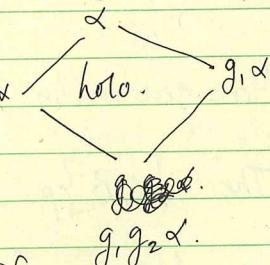 α
α holo. g₁α
α.
g₁g₂α.